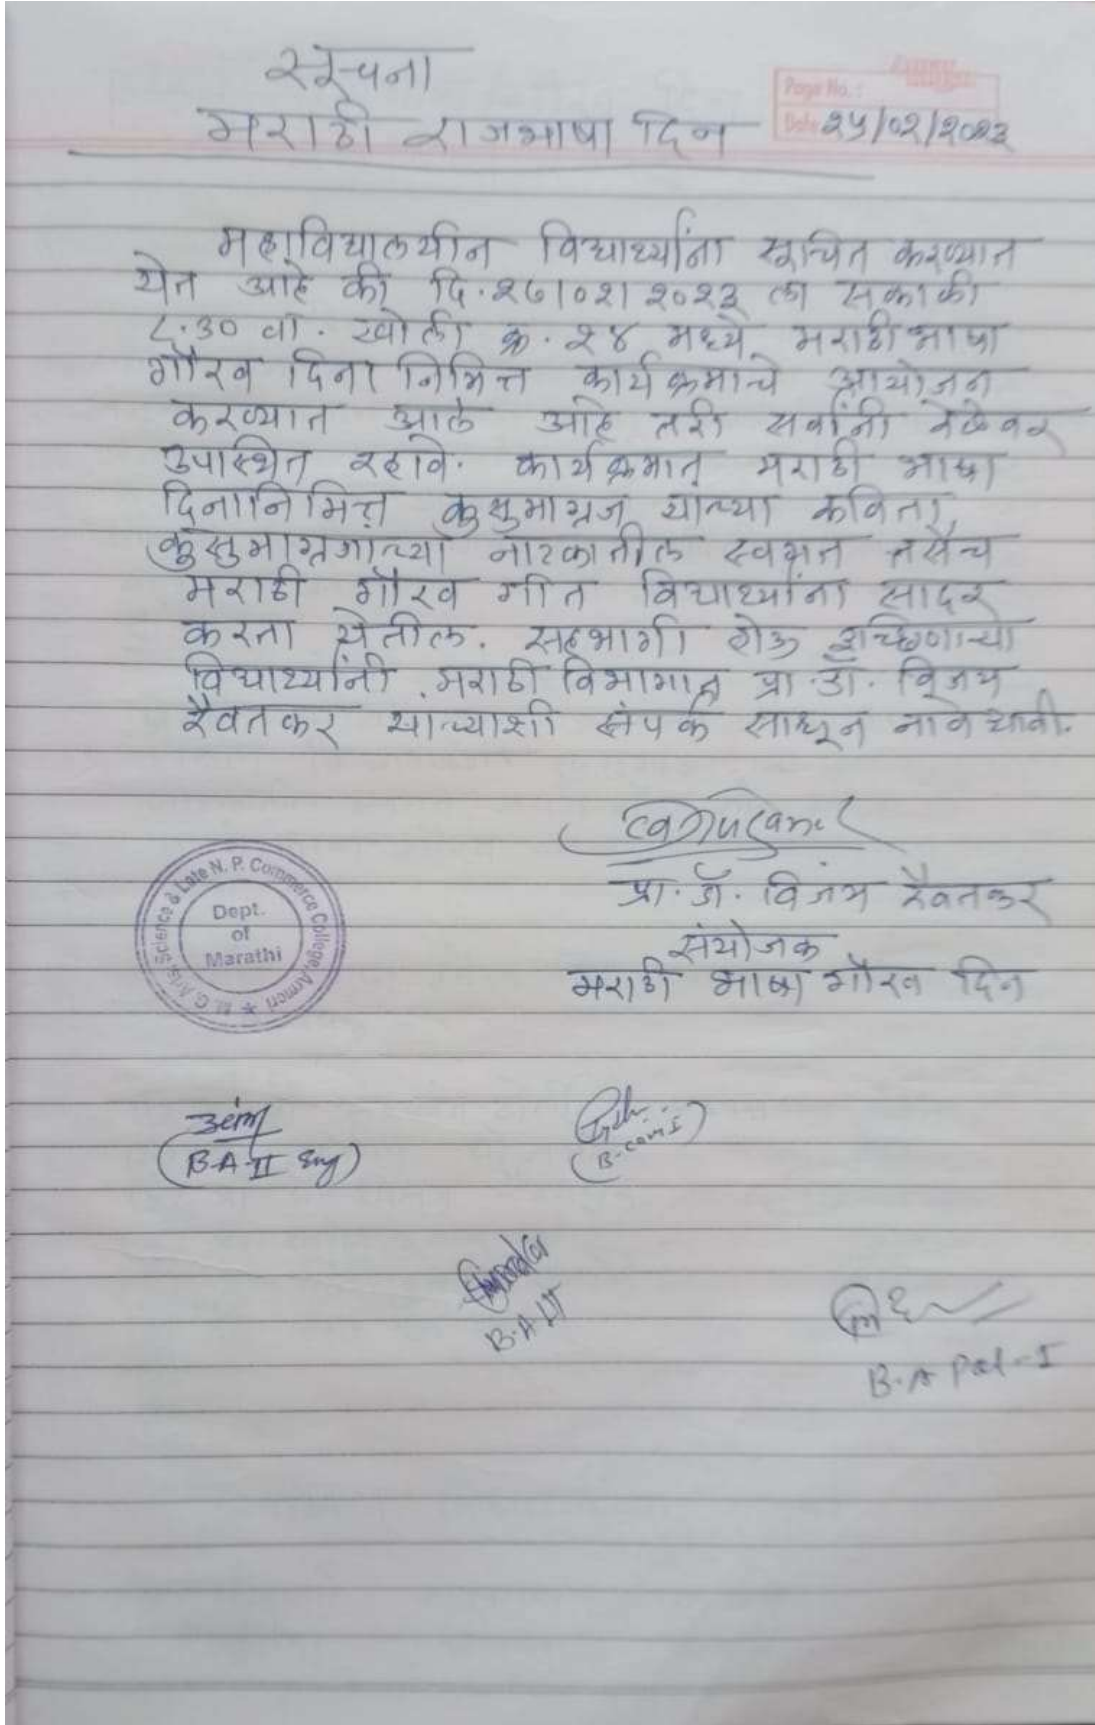 सूचना
मराठी राजभाषा दिन
Page No.:
Date २५/०२/२०२३
महाविद्यालयीन विद्यार्थ्यांना सूचित करण्यात
येत आहे की, दि.२७।०२।२०२३ ला सकाळी
८.३० वा. खोली क्र.२४ मध्ये मराठी भाषा
गौरव दिना निमित्त कार्यक्रमाचे आयोजन
करण्यात आले आहे तरी सर्वांनी वेळेवर
उपास्थित रहावे. कार्यक्रमात मराठी भाषा
दिनानिमित्त कुसुमाग्रज यांच्या कविता,
कुसुमाग्रजांच्या नाटकातील स्वगत तसेच
मराठी गौरव गीत विद्यार्थ्यांना सादर
करता येतील. सहभागी होऊ इच्छिणाऱ्या
विद्यार्थ्यांनी मराठी विभागात प्रा.डॉ. विजय
रैवतकर यांच्याशी संपर्क साधून नावे द्यावी.
प्रा. डॉ. विजय रैवतकर
संयोजक
मराठी भाषा गौरव दिन
M. G. Arts, Science & Late N. P. Commerce College, Armori
Dept.
of
Marathi
(B.A-II Eng)
(B.com I)
B.A
B.A Pol-I